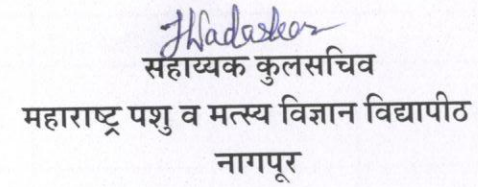 सहाय्यक कुलसचिव
महाराष्ट्र पशु व मत्स्य विज्ञान विद्यापीठ
नागपूर